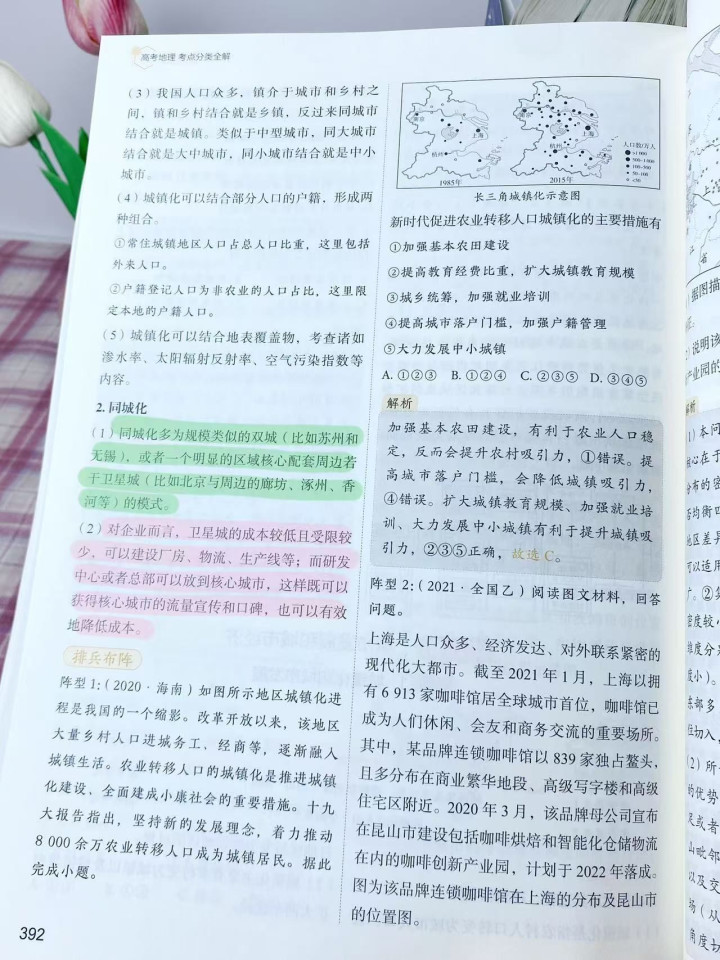 高考地理 考点分类全解
（3）我国人口众多，镇介于城市和乡村之
间，镇和乡村结合就是乡镇，反过来同城市
结合就是城镇。类似于中型城市，同大城市
结合就是大中城市，同小城市结合就是中小
城市。
（4）城镇化可以结合部分人口的户籍，形成两
种组合。
①常住城镇地区人口占总人口比重，这里包括
外来人口。
②户籍登记人口为非农业的人口占比，这里限
定本地的户籍人口。
（5）城镇化可以结合地表覆盖物，考查诸如
渗水率、太阳辐射反射率、空气污染指数等
内容。
2. 同城化
（1）同城化多为规模类似的双城（比如苏州和
无锡），或者一个明显的区域核心配套周边若
干卫星城（比如北京与周边的廊坊、涿州、香
河等）的模式。
（2）对企业而言，卫星城的成本较低且受限较
少，可以建设厂房、物流、生产线等；而研发
中心或者总部可以放到核心城市，这样既可以
获得核心城市的流量宣传和口碑，也可以有效
地降低成本。
排兵布阵
阵型1:（2020·海南）如图所示地区城镇化进
程是我国的一个缩影。改革开放以来，该地区
大量乡村人口进城务工、经商等，逐渐融入
城镇生活。农业转移人口的城镇化是推进城镇
化建设、全面建成小康社会的重要措施。十九
大报告指出，坚持新的发展理念，着力推动
8 000余万农业转移人口成为城镇居民。据此
完成小题。
392
南京
上海
杭州
1985年
南京
上海
杭州
2015年
人口数/万人
≥1 000
500~1 000
100~500
50~100
<50
长三角城镇化示意图
新时代促进农业转移人口城镇化的主要措施有
①加强基本农田建设
②提高教育经费比重，扩大城镇教育规模
③城乡统筹，加强就业培训
④提高城市落户门槛，加强户籍管理
⑤大力发展中小城镇
A. ①②③ B. ①②④ C. ②③⑤ D. ③④⑤
解析
加强基本农田建设，有利于农业人口稳
定，反而会提升农村吸引力，①错误。提
高城市落户门槛，会降低城镇吸引力，
④错误。扩大城镇教育规模、加强就业培
训、大力发展中小城镇有利于提升城镇吸
引力，②③⑤正确，故选C。
阵型2:（2021·全国乙）阅读图文材料，回答
问题。
上海是人口众多、经济发达、对外联系紧密的
现代化大都市。截至2021年1月，上海以拥
有6 913家咖啡馆居全球城市首位，咖啡馆已
成为人们休闲、会友和商务交流的重要场所。
其中，某品牌连锁咖啡馆以839家独占鳌头，
且多分布在商业繁华地段、高级写字楼和高级
住宅区附近。2020年3月，该品牌母公司宣布
在昆山市建设包括咖啡烘焙和智能化仓储物流
在内的咖啡创新产业园，计划于2022年落成。
图为该品牌连锁咖啡馆在上海的分布及昆山市
的位置图。